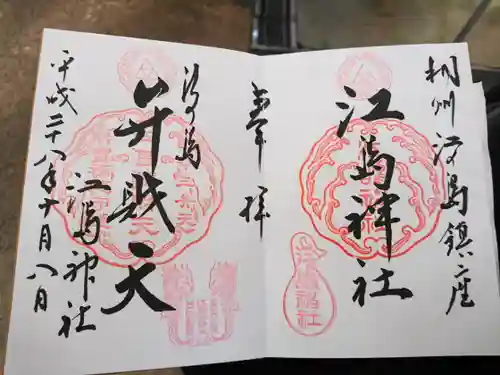 相州江島鎮座
江島神社
奉拝
江島
弁財天
江島神社
平成二十八年十月八日